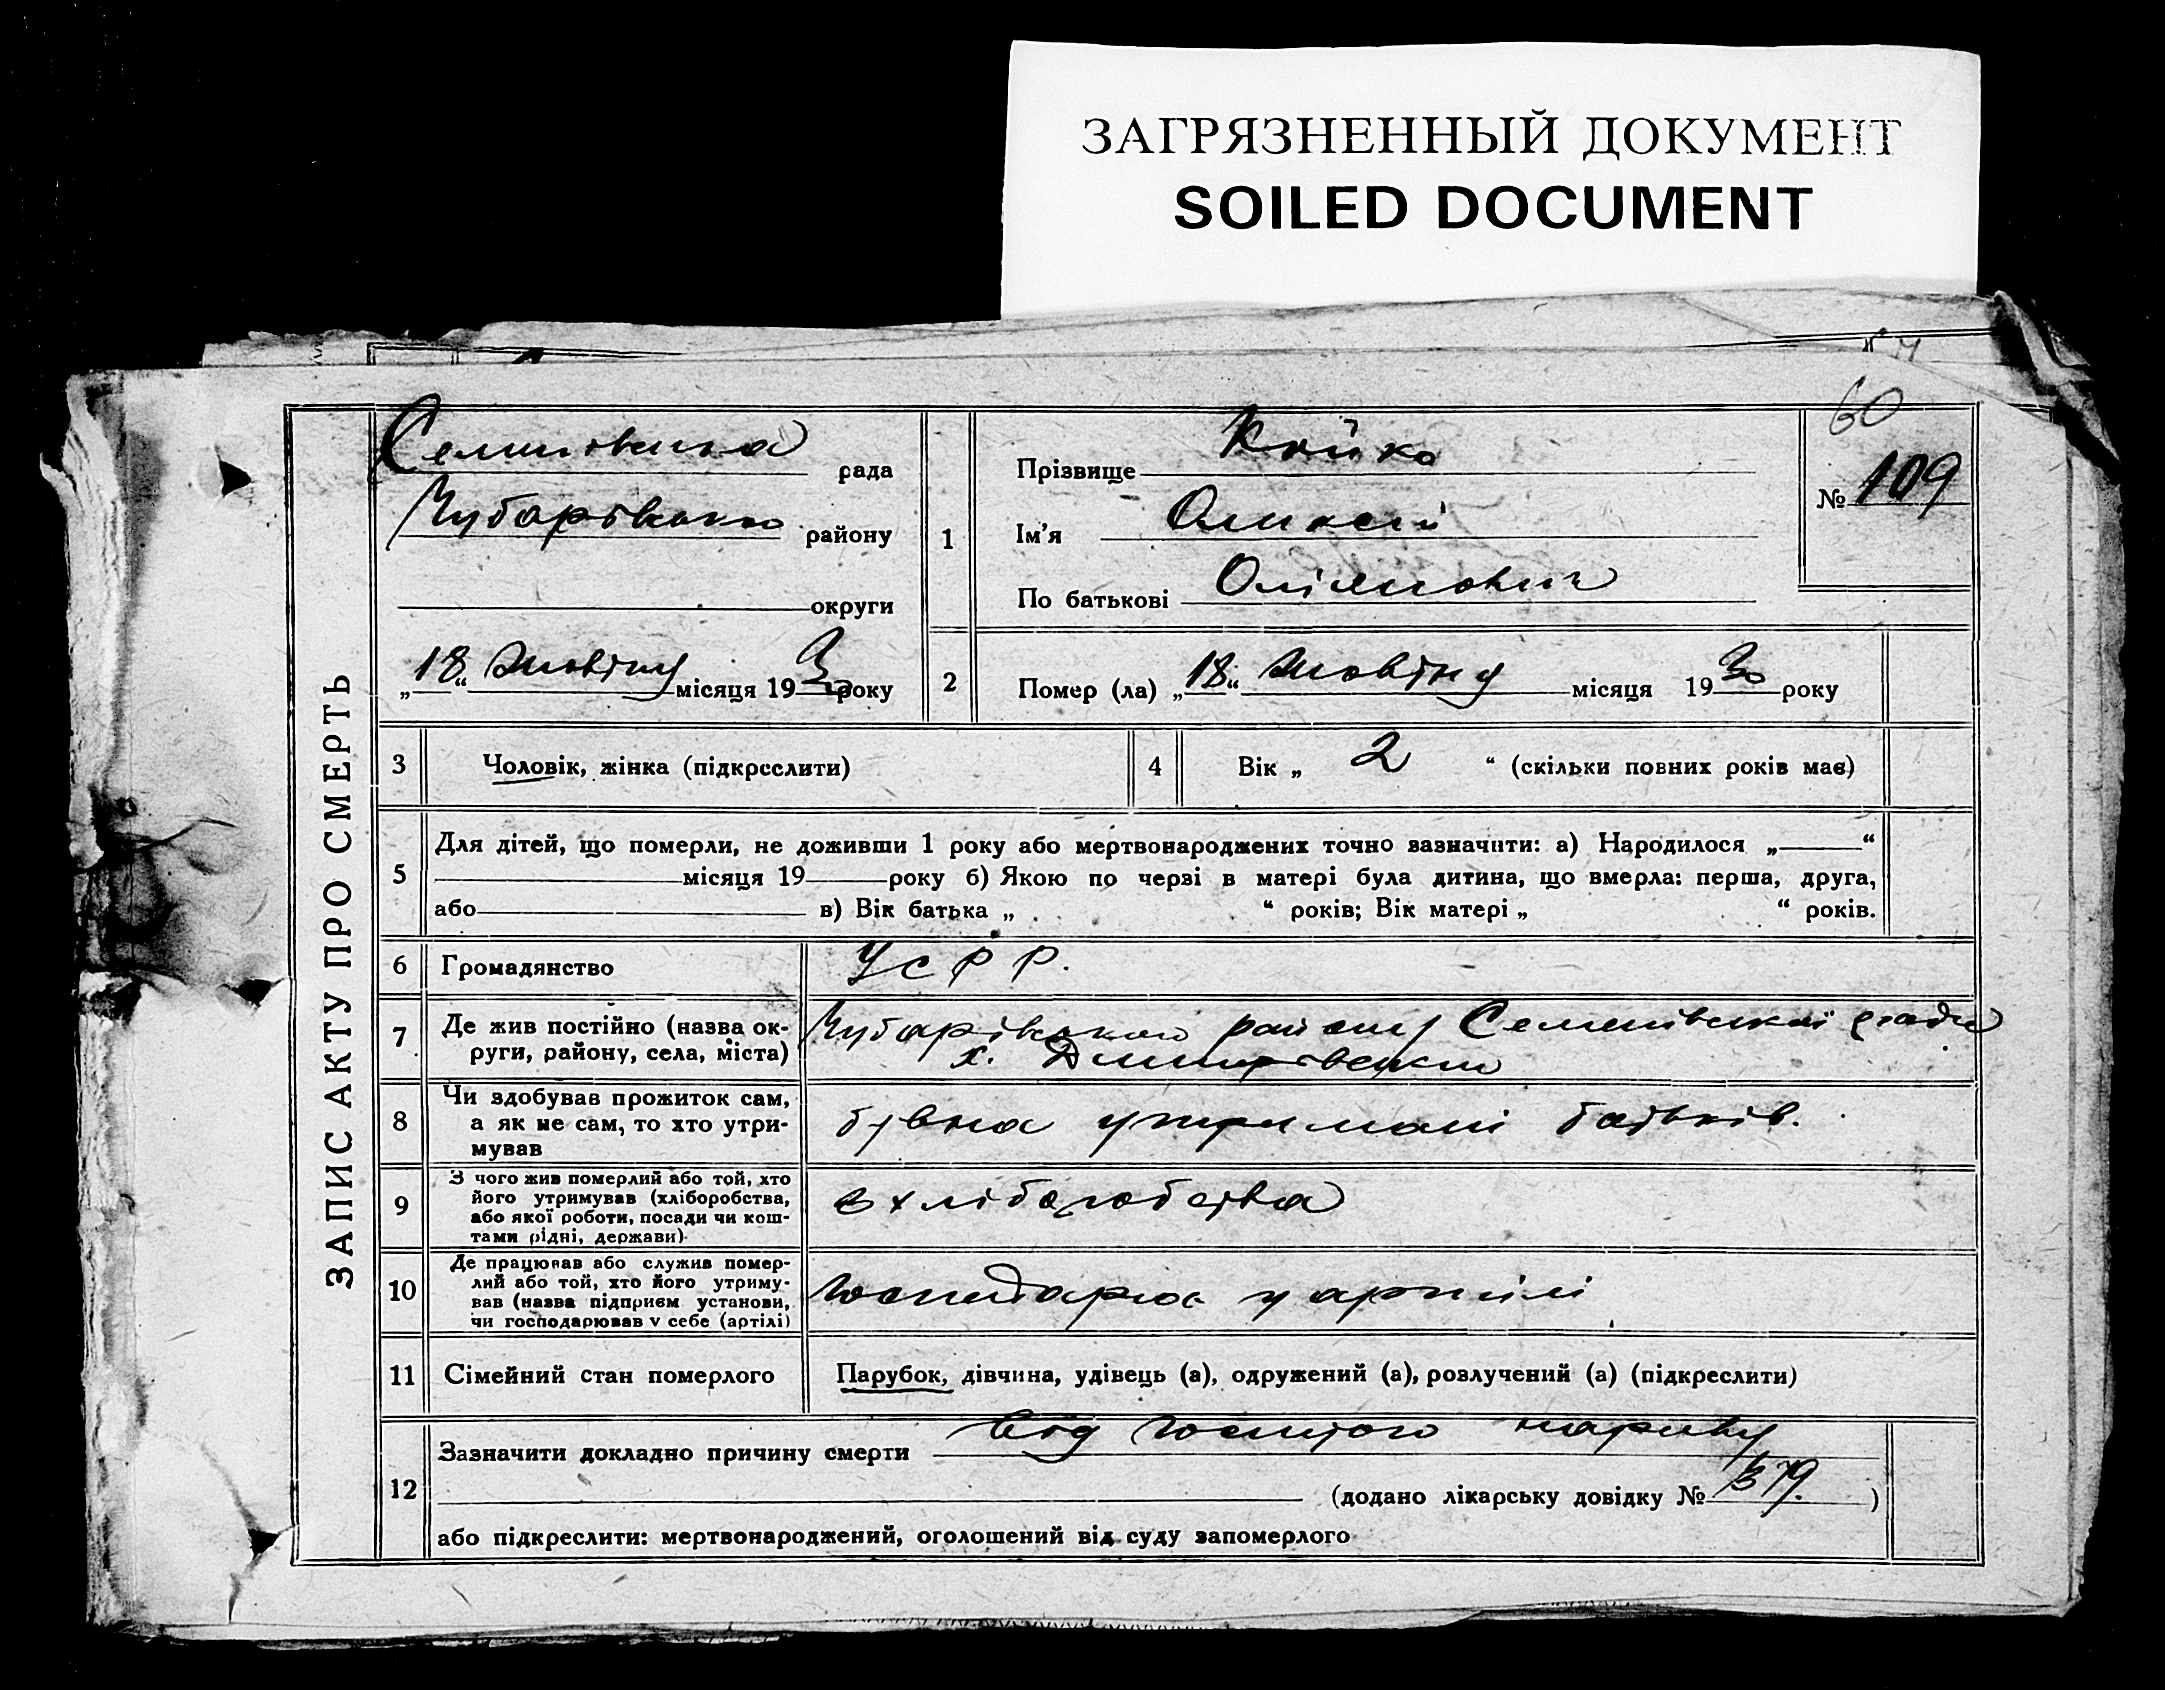 ЗАГРЯЗНЕННЫЙ ДОКУМЕНТ
SOILED DOCUMENT
60
ЗАПИС АКТУ ПРО СМЕРТЬ
рада
Чубарівського району
округи
„18“ Жовтня місяця 1930 року
1
Прізвище Койко
Ім'я Олексій
По батькові
№ 109
2
Помер (ла) „18“ Жовтня місяця 1930 року
3
Чоловік, жінка (підкреслити)
4
Вік „ 2 “ (скільки повних років має)
5
Для дітей, що померли, не доживши 1 року або мертвонароджених точно зазначити: а) Народилося „ “
місяця 19 року б) Якою по черзі в матері була дитина, що вмерла: перша, друга,
або в) Вік батька „ “ років; Вік матері „ “ років.
6
Громадянство
УСРР.
7
Де жив постійно (назва ок-
руги, району, села, міста)
Чубарівського району ради
х.
8
Чи здобував прожиток сам,
а як не сам, то хто утри-
мував
був на утримані батьків.
9
З чого жив померлий або той, хто
його утримував (хліборобства,
або якої роботи, посади чи кош-
тами рідні, держави)
з хліборобства
10
Де працював або служив помер-
лий або той, хто його утриму-
вав (назва підприєм установи,
чи господарював у себе (артілі)
господарює у артілі
11
Сімейний стан померлого
Парубок, дівчина, удівець (а), одружений (а), розлучений (а) (підкреслити)
12
Зазначити докладно причину смерти Від
(додано лікарську довідку № 379.)
або підкреслити: мертвонароджений, оголошений від суду запомерлого